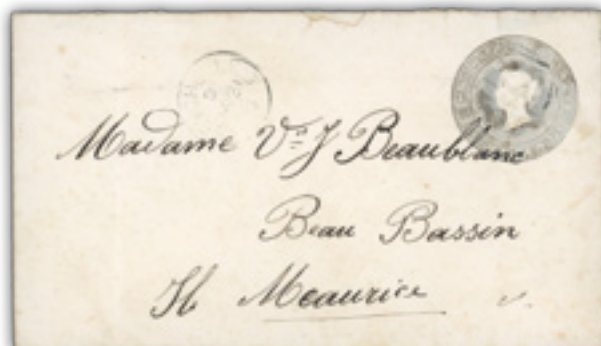 Madame Vᵉ J Beaublanc
Beau Bassin
Il Meaurice